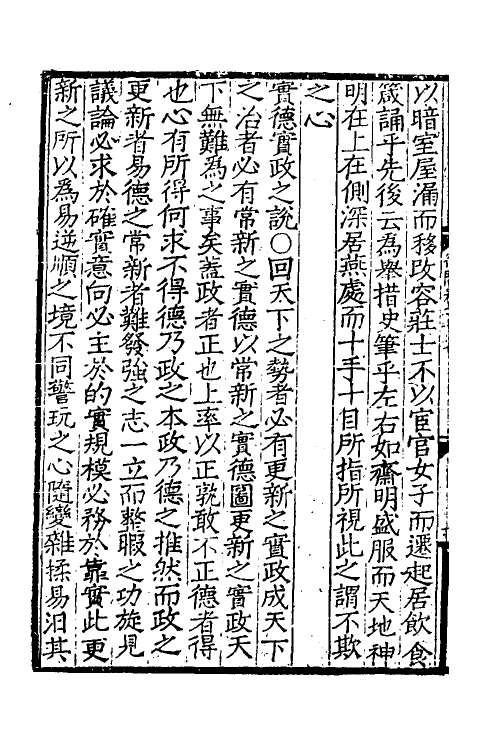 以暗室屋漏而移改容莊士不以宦官女子而遷起居飲食
箴誦乎先後云為舉措史筆乎左右如齋明盛服而天地神
明在上在側深居燕處而十手十目所指所視此之謂不欺
之心
實德實政之說〇回天下之勢者必有更新之實政成天下
之治者必有常新之實德以常新之實德圖更新之實政天
下無難為之事矣蓋政者正也上率以正孰敢不正德者得
也心有所得何求不得德乃政之本政乃德之推然而政之
更新者易德之常新者難發強之志一立而整暇之功旋見
議論必求於確實意向必主於的實規模必務於靠實此更
新之所以為易逆順之境不同警玩之心隨變雜揉易汩其